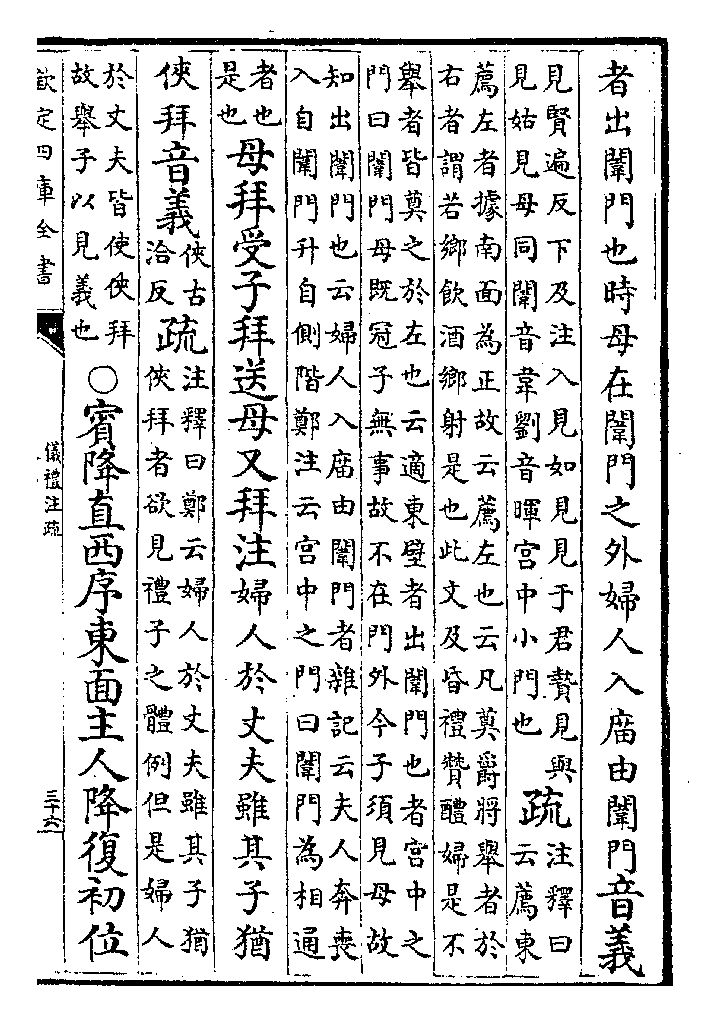 者出闈門也時母在闈門之外婦人入庿由闈門音義
見賢遍反下及注入見如見見于君贄見與
見姑見母同闈音韋劉音暉宮中小門也
疏
注釋曰
云薦東
薦左者據南面為正故云薦左也云凡奠爵將舉者於
右者謂若鄉飲酒鄉射是也此文及昏禮贊醴婦是不
舉者皆奠之於左也云適東壁者出闈門也者宮中之
門曰闈門母既冠子無事故不在門外今子須見母故
知出闈門也云婦人入庿由闈門者雜記云夫人奔喪
入自闈門升自側階鄭注云宮中之門曰闈門為相通
者也
是也
母拜受子拜送母又拜注婦人於丈夫雖其子猶
俠拜音義
俠古
洽反
疏
注釋曰鄭云婦人於丈夫雖其子猶
俠拜者欲見禮子之體例但是婦人
於丈夫皆使俠拜
故舉子以見義也
○賓降直西序東面主人降復初位
欽定四庫全書
儀禮注疏
三十六